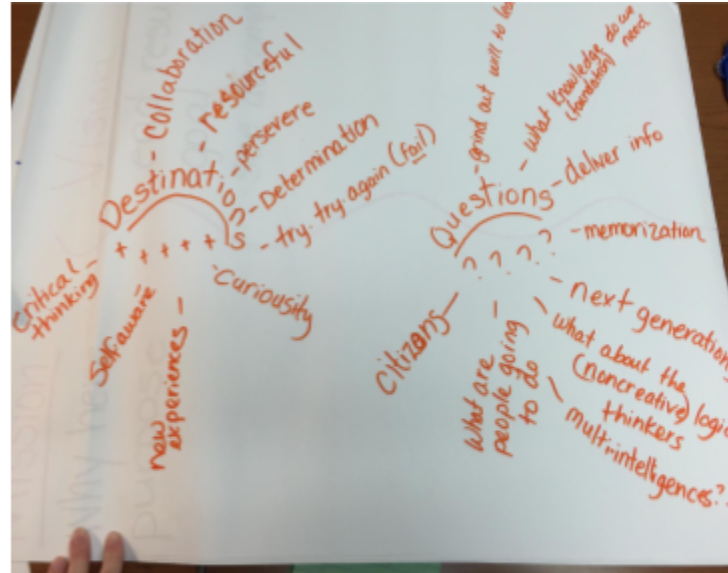 Destinations
- collaboration
- resourceful
- persevere
- Determination
- try. try. again (fail)
- Curiousity
new
experiences -
Self aware -
Critical -
thinking
Questions
- grind out will to
- what knowledge do we
(foundation) need
- deliver info
- memorization
- next generation
- what about the
(noncreative) logic
thinkers
- multi..intelligences??
what are
people going
to do
Citizens -
? ? ? ?
+ + + + +
Why
purpose